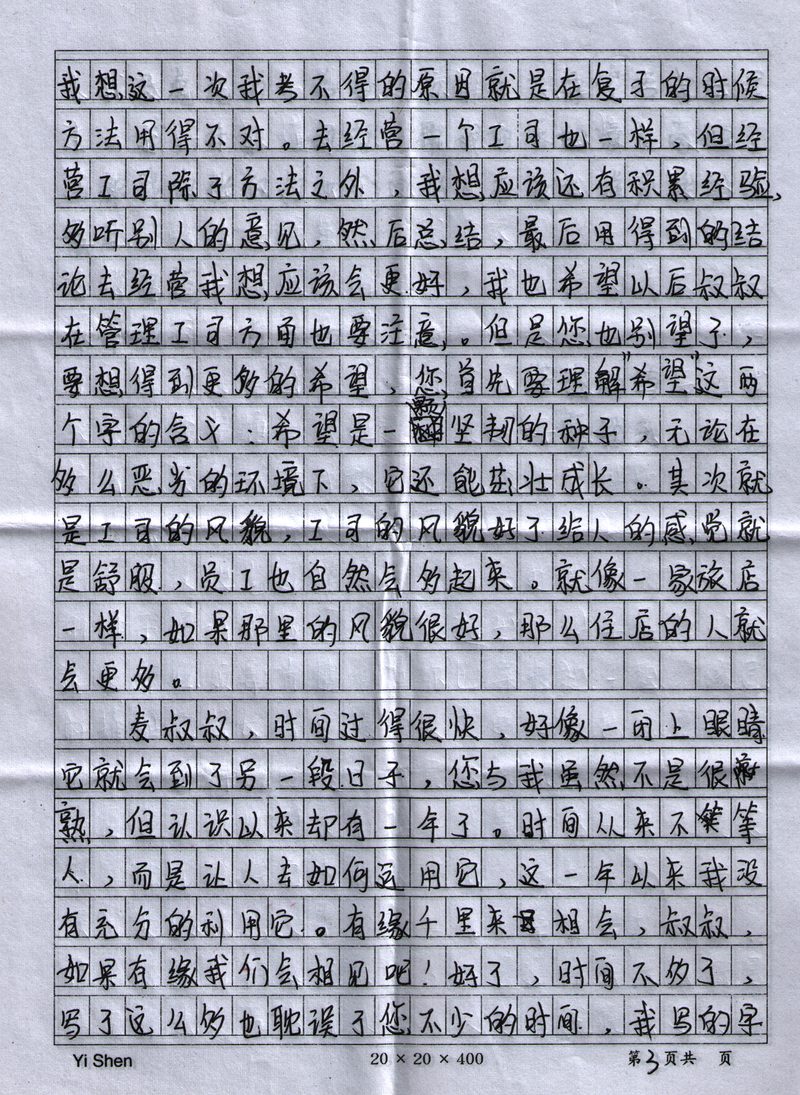 我想这一次我考不得的原因就是在复于的时候
方法用得不对。去经营一个工司也一样，但经
营工司除了方法之外，我想应该还有积累经验，
多听别人的意见，然后总结，最后用得到的结
论去经营我想应该会更好，我也希望以后叔叔
在管理工司方面也要注意。但是您也别望了，
要想得到更多的希望，您首先要理解"希望"这两
个字的含义：希望是一颗坚韧的种子，无论在
多么恶劣的环境下，它还能茁壮成长。其次就
是工司的风貌，工司的风貌好了给人的感觉就
是舒服，员工也自然会多起来。就像一家旅店
一样，如果那里的风貌很好，那么住店的人就
会更多。
麦叔叔，时间过得很快，好像一闭上眼睛
它就会到了另一段日子，您与我虽然不是很
熟，但认识以来却有一年了。时间从来不等
人，而是让人去如何运用它，这一年以来我没
有充分的利用它。有缘千里来相会，叔叔，
如果有缘我们会相见吧！好了，时间不多了，
写了这么多也耽误了您不少的时间，我写的字
Yi Shen 20 × 20 × 400 第3页共 页